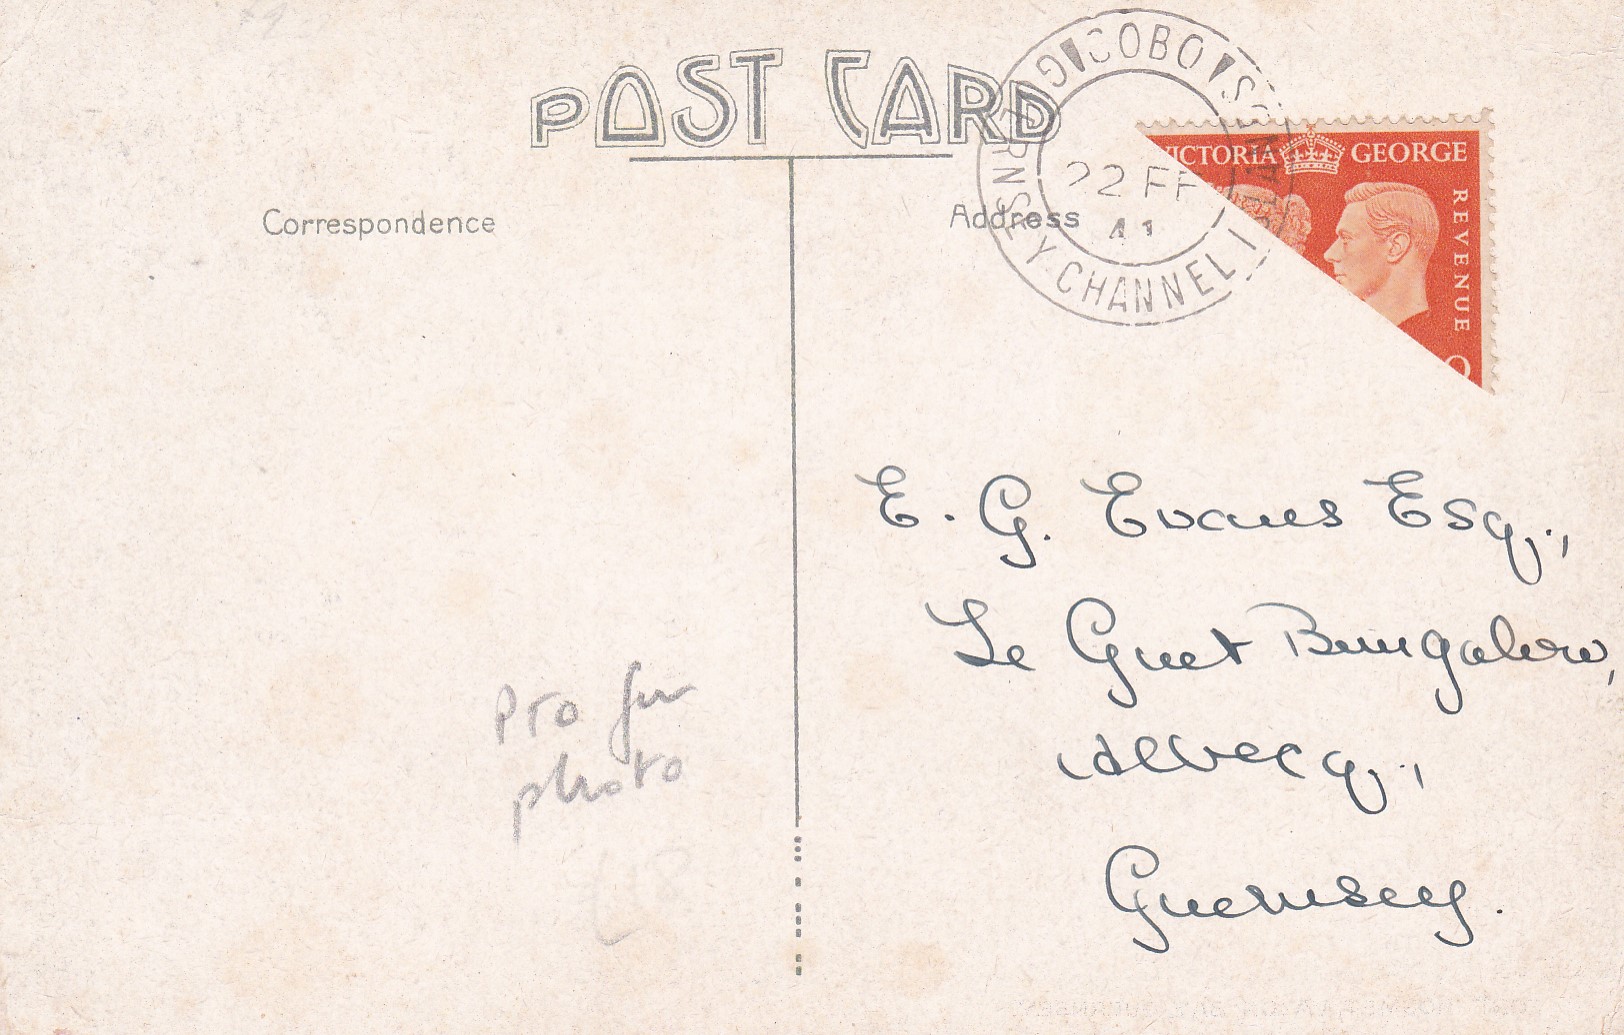 POST CARD
Correspondence
Address
COBO · S
GUERNSEY · CHANNEL I
22 FE
41
VICTORIA GEORGE
REVENUE
E. G. Evans Esq.,
Le Guet Bungalow,
Albecq.,
Guernsey.
Pro for
photo